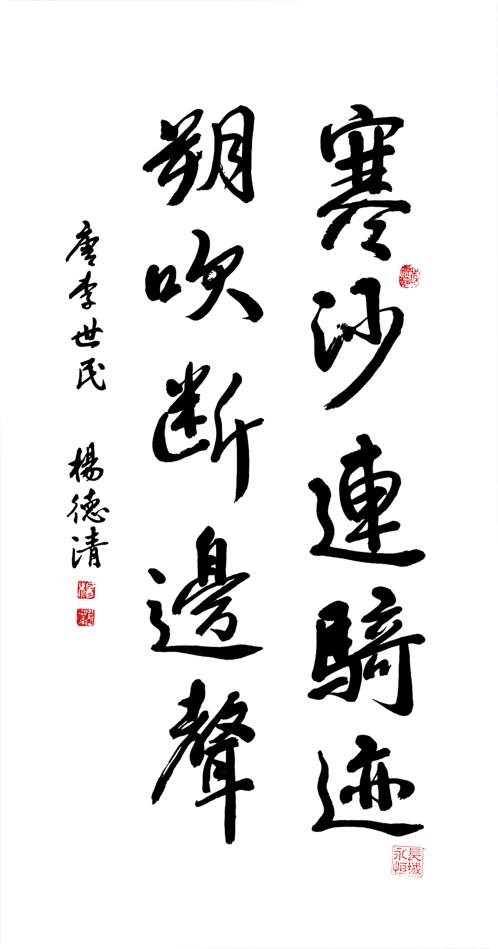 寒沙連騎迹
朔吹断邊聲
唐李世民 楊德清
長城永恒